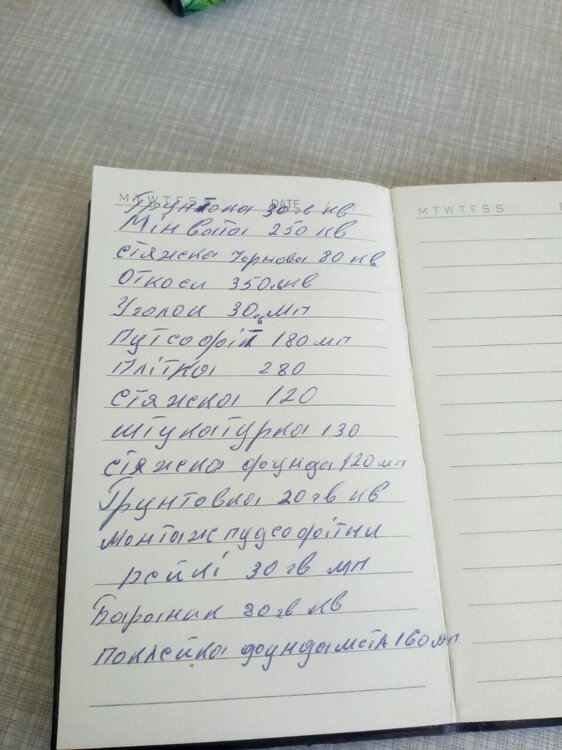 M T W T F S S DATE
Грунтовка 30гв кв
Мінвата 250 кв
стяжка чернова 80 кв
Откоси 350гвкв
Уголок 30гвмп
Путсофіт 180мп
Плітка 280
Стяжка 120
штукатурка 130
стяжска фунда 120 мп
Грунтовка 20гв кв
монтаж пудсофітни
рейкі 30гв мп
Баранак 80гв кв
поклейка фундамєта 160мп
M T W T F S S